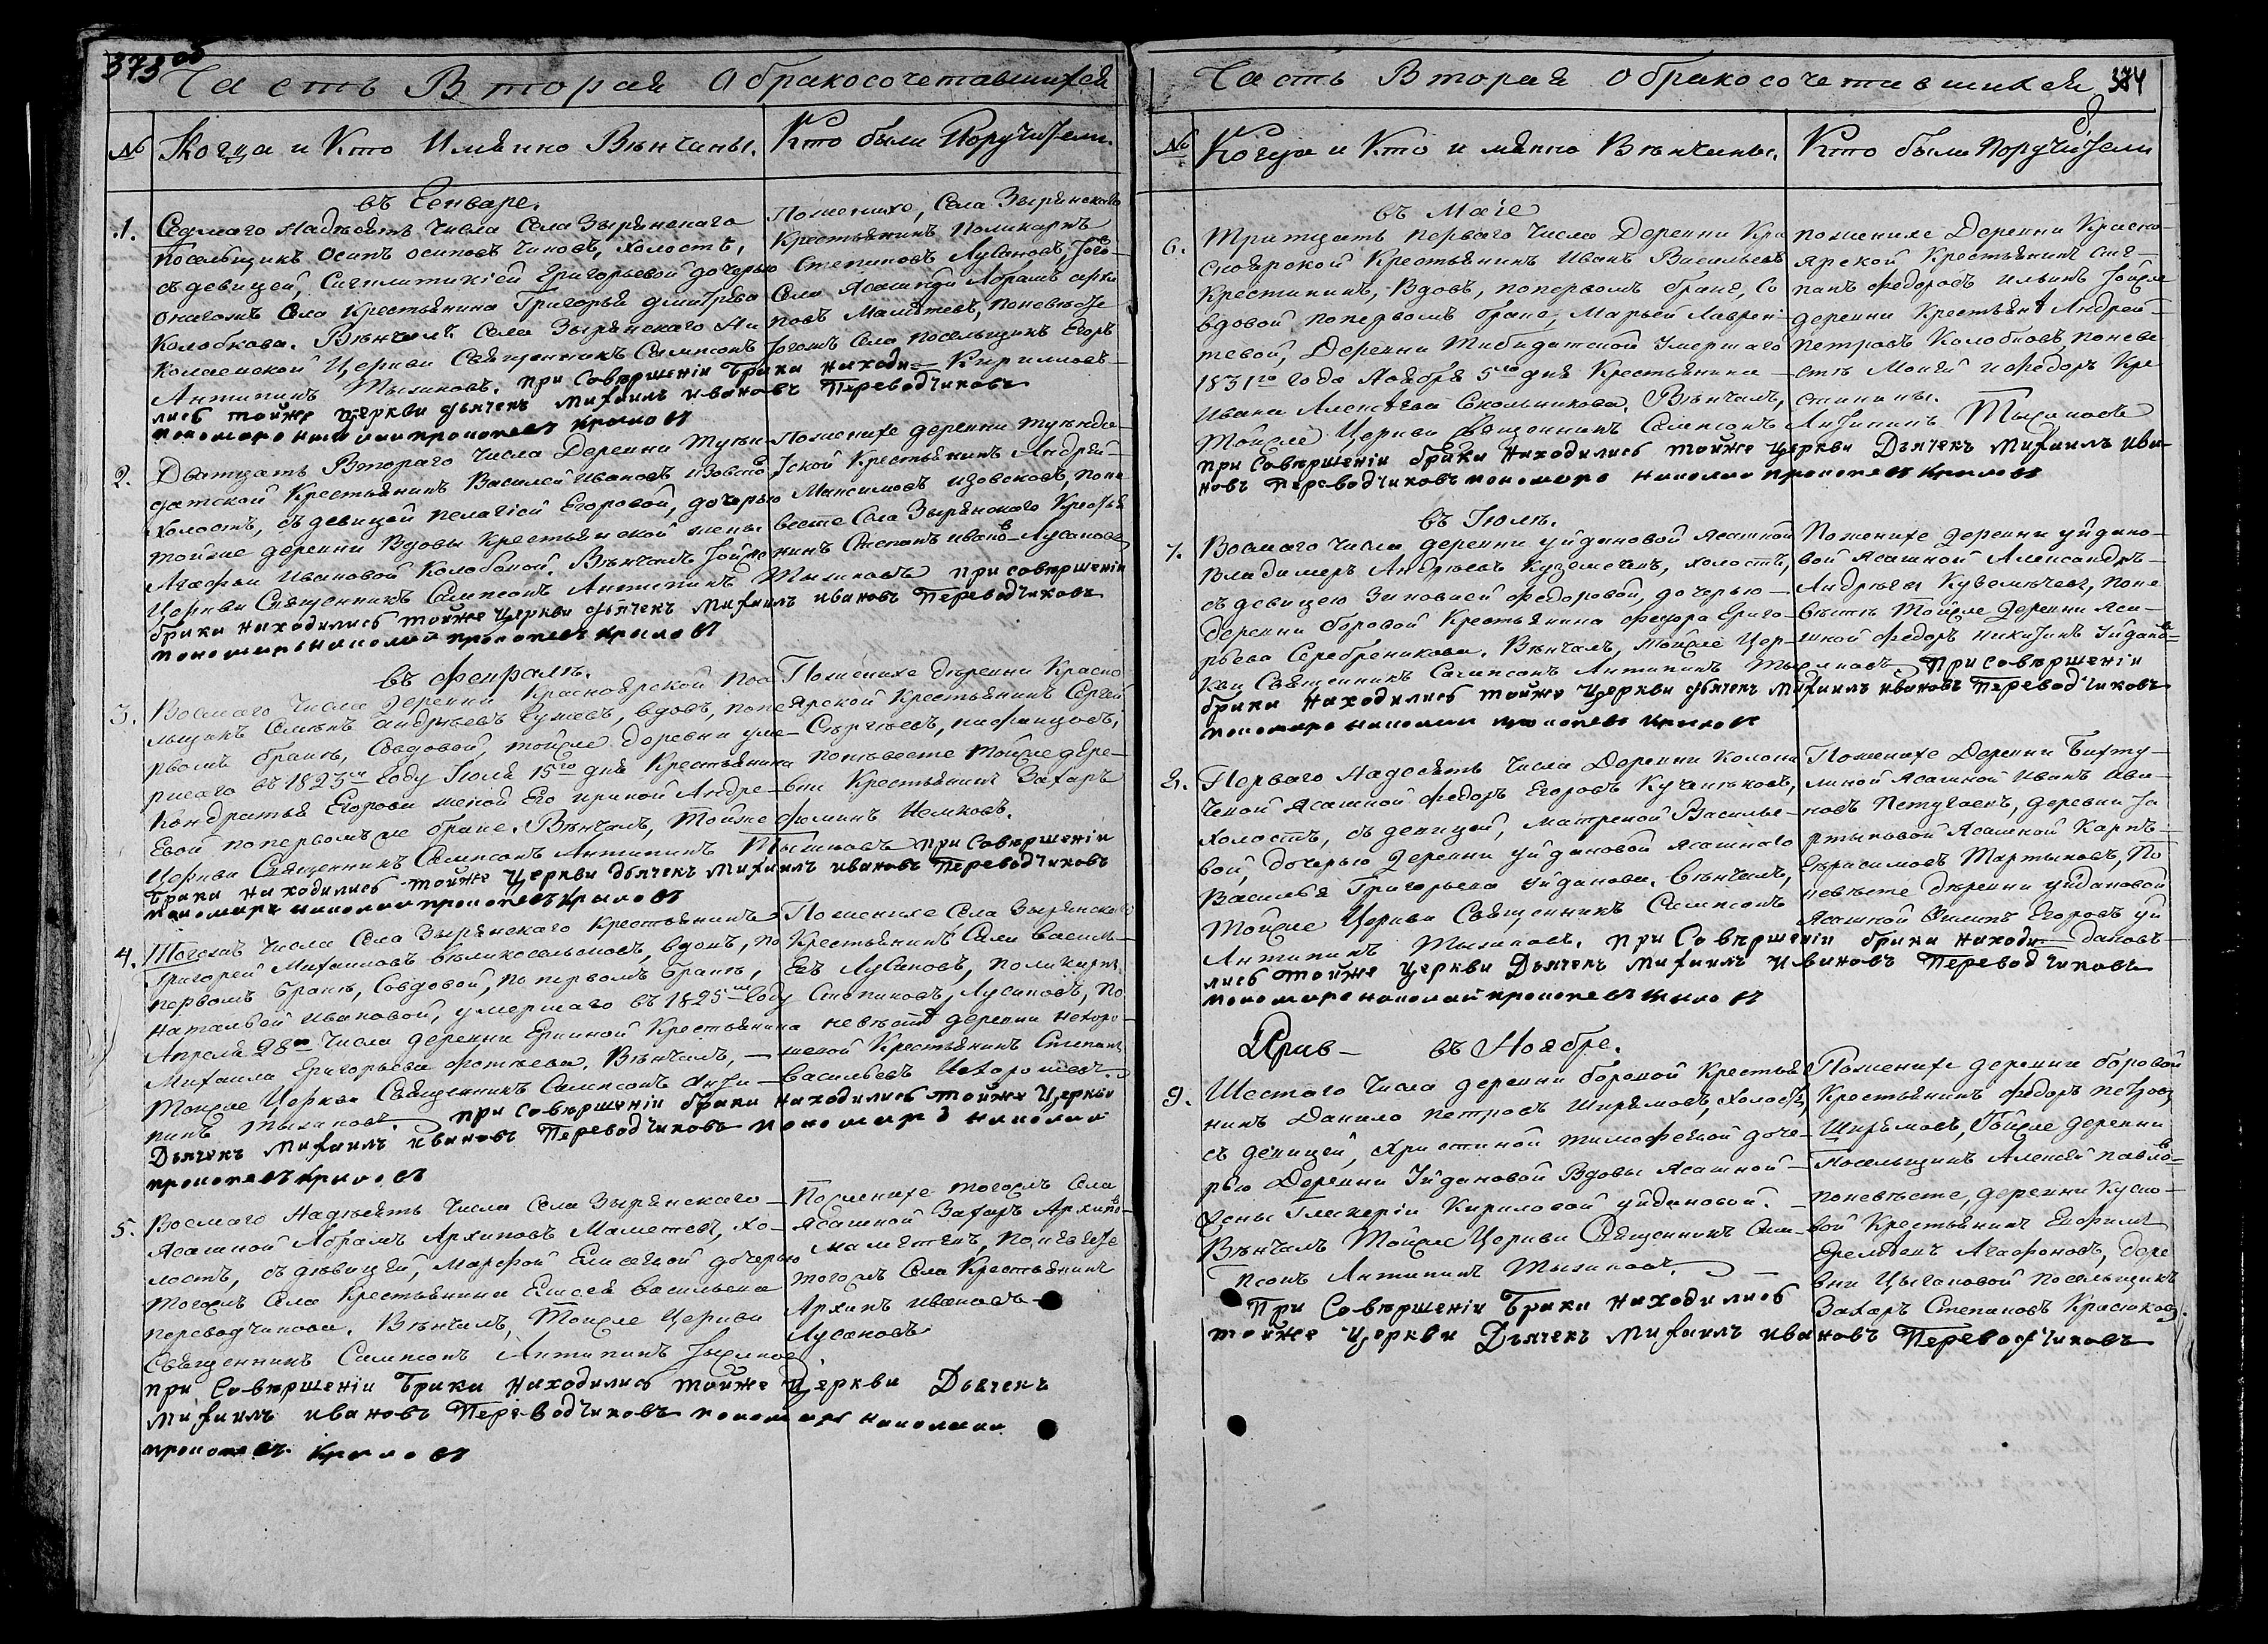 373 об
Часть Вторая О бракосочетавшихся
№ Когда и Кто Имянно Вѣнчаны. Кто были Поручители.
въ Генваре.
1. Седмаго Надесять Числа Села Зырянскаго
посельщикъ Осипъ осиповъ Чиновъ, холостъ,
съ девицей, Григорьевой дочерью
онагожъ Села Крестьянина Григорья дмитрева
Колобкова. Вѣнчалъ Села Зырянскаго Ни
колаевской Церкви Священникъ Сампсонъ
Антипинъ Тыжновъ. при Совѣршеніи Брака находи
лись тойже Церкви дьячекъ Михаилъ ивановъ Переводчиковъ
пономарь николай прокопьевъ Крыловъ
Поженихе, Села Зырянскаго
Крестьянинъ поликарпъ
Степановъ Лусановъ, того
Села Ясашной Абрамъ архи
повъ Маметевъ, поневѣсте
тогожъ Села посельщикъ Егоръ
Кириловъ
2. Дватцать Втораго Числа Деревни Туен
датской Крестьянинъ Василей Ивановъ Изовской
Холостъ, съ девицей пелагіей Егоровой, дочерью
тойже деревни Вдовы Крестьянской жены
Агафьи Ивановой Колобовой. Вѣнчалъ тойже
Церкви Священникъ Сампсонъ Антипинъ Тыжновъ при совѣршеніи
брака находились тойже Церкви дьячекъ Михаилъ ивановъ Переводчиковъ
пономарь николай прокопьевъ Крыловъ
Поженихе деревни туенда
тской Крестьянинъ Андрей
Максимовъ изовсковъ, поне
весте Села Зырянского Крестья
нинъ Степанъ ивановъ Лусановъ
въ Февралѣ.
3. Восмаго Числа деревни Красноярской Посе
льщикъ Семѣнъ андрѣевъ, вдовъ, попе
рвомъ бракѣ, Совдовой, тойже деревни уме
ршаго въ 1823м Году Іюля 15го дня Крестьянина
Кондратья Егорова женой Его ириной Андре
евой попервомъже браке. Вѣнчалъ, Тойже
Церкви Священникъ Сампсонъ Антипинъ Тыжновъ при Совѣршеніи
Брака находились тойже Церкви дьячекъ Михаилъ ивановъ Переводчиковъ
пономарь николай прокопьевъ Крыловъ
Поженихе дѣревни Красно
ярской Крестьянинъ Сергей
Сѣргѣевъ,
поневесте тойже дере
вни Крестьянинъ Захаръ
фоминъ Немковъ.
4. Тогожъ Числа Села Зырянскаго Крестьянинъ
Григорей Михаиловъ бѣликосельсковъ, вдовъ, по
первомъ бракѣ, Совдовой, по первомъ бракѣ,
Натальей ивановой, умершаго въ 1825м Году
Апреля 28го Числа деревни Крестьянина
Михаила Григорьева Фотѣева. Вѣнчалъ,
Тойже Церкви Священникъ Сампсонъ Анти
пинъ Тыжновъ. при совѣршеніи брака находились тойже Церкви
Дьячекъ Михаилъ ивановъ Переводчиковъ пономарь николай
прокопьевъ Крыловъ
Поженихе Села Зырянскаго
Крестьянинъ Сава Василь
евъ Лусановъ, Поликарпъ
Степановъ, Лусановъ, по
невѣсте деревни нехоро
шевой Крестьянинъ Степанъ
Васильевъ Нехорошевъ.
5. Восмаго Надѣсять Числа Села Зырянскаго
Ясашной Абрамъ Архиповъ Маметевъ, хо
лостъ, съ дѣвицей, Марфой Елисеевой дочерью
тогожъ Села Крестьянина Елисея Васильева
переводчикова. Вѣнчалъ, Тойже Церкви
Священникъ Сампсонъ Антипинъ Тыжновъ
при Совѣршеніи Брака находились тойже Церкви Дьячекъ
Михаилъ ивановъ Переводчиковъ пономарь николай
прокопьевъ Крыловъ
Поженихе тогожъ Села
Ясашной Захаръ Архиповъ
Маметевъ, поневѣсте
тогожъ Села Крестьянинъ
Архипъ ивановъ
Лусановъ
Часть Вторая О бракосочетавшихся 374
№ Когда и Кто имянно Вѣнчаны. Кто были Поручители
въ Маіе
6. Тритцать перваго Числа Деревни Кра
сноярской Крестьянинъ Иванъ Васильевъ
Крестининъ, Вдовъ, попервомъ браке, Со
вдовой попервомъ браке, Марьей Лаврен
тевой, Деревни Тибидатской Умершаго
1831го Года Ноября 5го дня Крестьянина
Ивана Алексѣева Сокольникова. Вѣнчалъ,
Тойже Церкви Священникъ Сампсонъ Антипинъ Тыжновъ
при Совѣршеніи брака Находились тойже Церкви Дьячекъ Михаилъ ива
новъ Переводчиковъ пономарь николай прокопьевъ Крыловъ
поженихе Деревни Красно
ярской Крестьянинъ Сте
панъ Федоровъ ильинъ тойже
деревни Крестьянинъ Андрей
петровъ Колобковъ, поневе
стѣ Моисей и Федоръ Кре
стинины.
въ Іюлѣ.
7. Восмаго Числа деревни уйдановой Ясашной
Владимеръ Андрѣевъ Куземѣчевъ, холостъ,
съ девицею Зиновией Федоровой, дочерью
Деревни боровой Крестьянина Федора Григо
рьева Серебреникова. Вѣнчалъ, тойже Цер
кви Священникъ Сампсонъ Антипинъ Тыжновъ При совѣршеніи
брака Находились тойже Церкви дьячекъ Михаилъ ивановъ Переводчиковъ
пономарь николаи прокопьевъ Крыловъ
Поженихе Деревни уйдано
вой Ясашной Александръ
Андрѣевъ Кузѣмечевъ, поне
вѣсте Тойже Деревни Яса
шной Федоръ никитинъ Уйдановъ
8. Перваго Надесять Числа Деревни
Ясашной Федоръ Егоровъ Кученюковъ,
Холостъ, съ девицей, Матреной Василье
вой, дочерью Деревни уйдановой Ясашнаго
Василья Григорьева Уйданова. Вѣнчалъ,
Тойже Церкви Священникъ Сампсонъ
Антипинъ Тыжновъ. при Совѣршеніи брака находи
лись тойже Церкви Дьячекъ Михаилъ Ивановъ Переводчиковъ
пономарь николай прокопьевъ Крыловъ
Поженихе Деревни Бихту
линой Ясашной Иванъ Ива
новъ Петугаевъ, деревни Та
ртыковой Ясашной Карпъ
Герасимовъ Тартыковъ, По
невѣсте деревни уйдановой
Ясашной Филипъ Егоровъ уй
дановъ
въ Ноябре.
9. Шестого Числа деревни боровой Крестья
нинъ Данило петровъ Ширямовъ, Холостъ,
съ девицей, Христиной тимофѣевой доче
рью Деревни Уйдановой Вдовы Ясашной
Жены Гликеріи Кириловой уйдановой.
Вѣнчалъ Тойже Церкви Священникъ Сам
псонъ Антипинъ Тыжновъ.
При Совѣршеніи Брака находились
тойже Церкви Дьячекъ Михаилъ ивановъ Переводчиковъ
Поженихе деревни боровой
Крестьянинъ Федоръ петровъ
Ширямовъ, Тойже деревни
Посельщикъ Алексѣй павловъ
поневѣсте, деревни Куско
вой Крестьянинъ Ефимъ
Агафоновъ, дере
вни Цыгановой посельщикъ
Захаръ Степановъ Красиковъ.